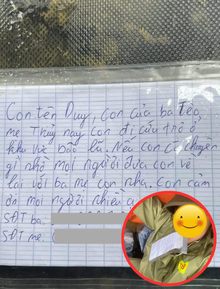 Con tên Duy, con của ba Tèo,
mẹ Thủy nay con đi cứu trợ ở
khu vực bão lũ. Nếu con có chuyện
gì nhờ mọi người đưa con về
lại với ba mẹ con nha. Con cảm
ơn mọi người nhiều ạ
SĐT ba:
SĐT mẹ: